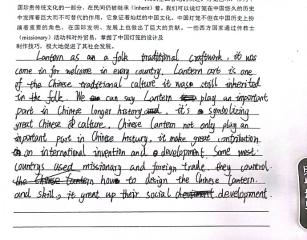 国珍贵传统文化的一部分,在民间仍被继承(inherit)着。我们可以说灯笼在悠久的历史
中发挥着巨大的不可替代的作用,它象征着灿烂的中国文化。中国灯笼不但在中国历史上扮
演着重要的角色,在国际发明、发展上也做出了巨大的贡献。一些西方国家通过传教士
(missionary)活动和对外贸易,掌握了中国灯笼的设计及
制作技巧,极大地促进了其社会发展。
Lantern as an a folk traditional craftwork, it was
came in for welcome in every country. Lantern art is one
of the Chinese traditional culture it was still inherited
in the folk. We can say Lantern play an important
part in Chinese longer history and it's symbolizing
great Chinese culture. Chinese Lantern not only play an
important pars in Chinese history, it make great contribution
on international invention and development. Some west
countrys used missionary and foreign trade, they control
how to design the Chinese Lantern
and skill, it great up their social development.